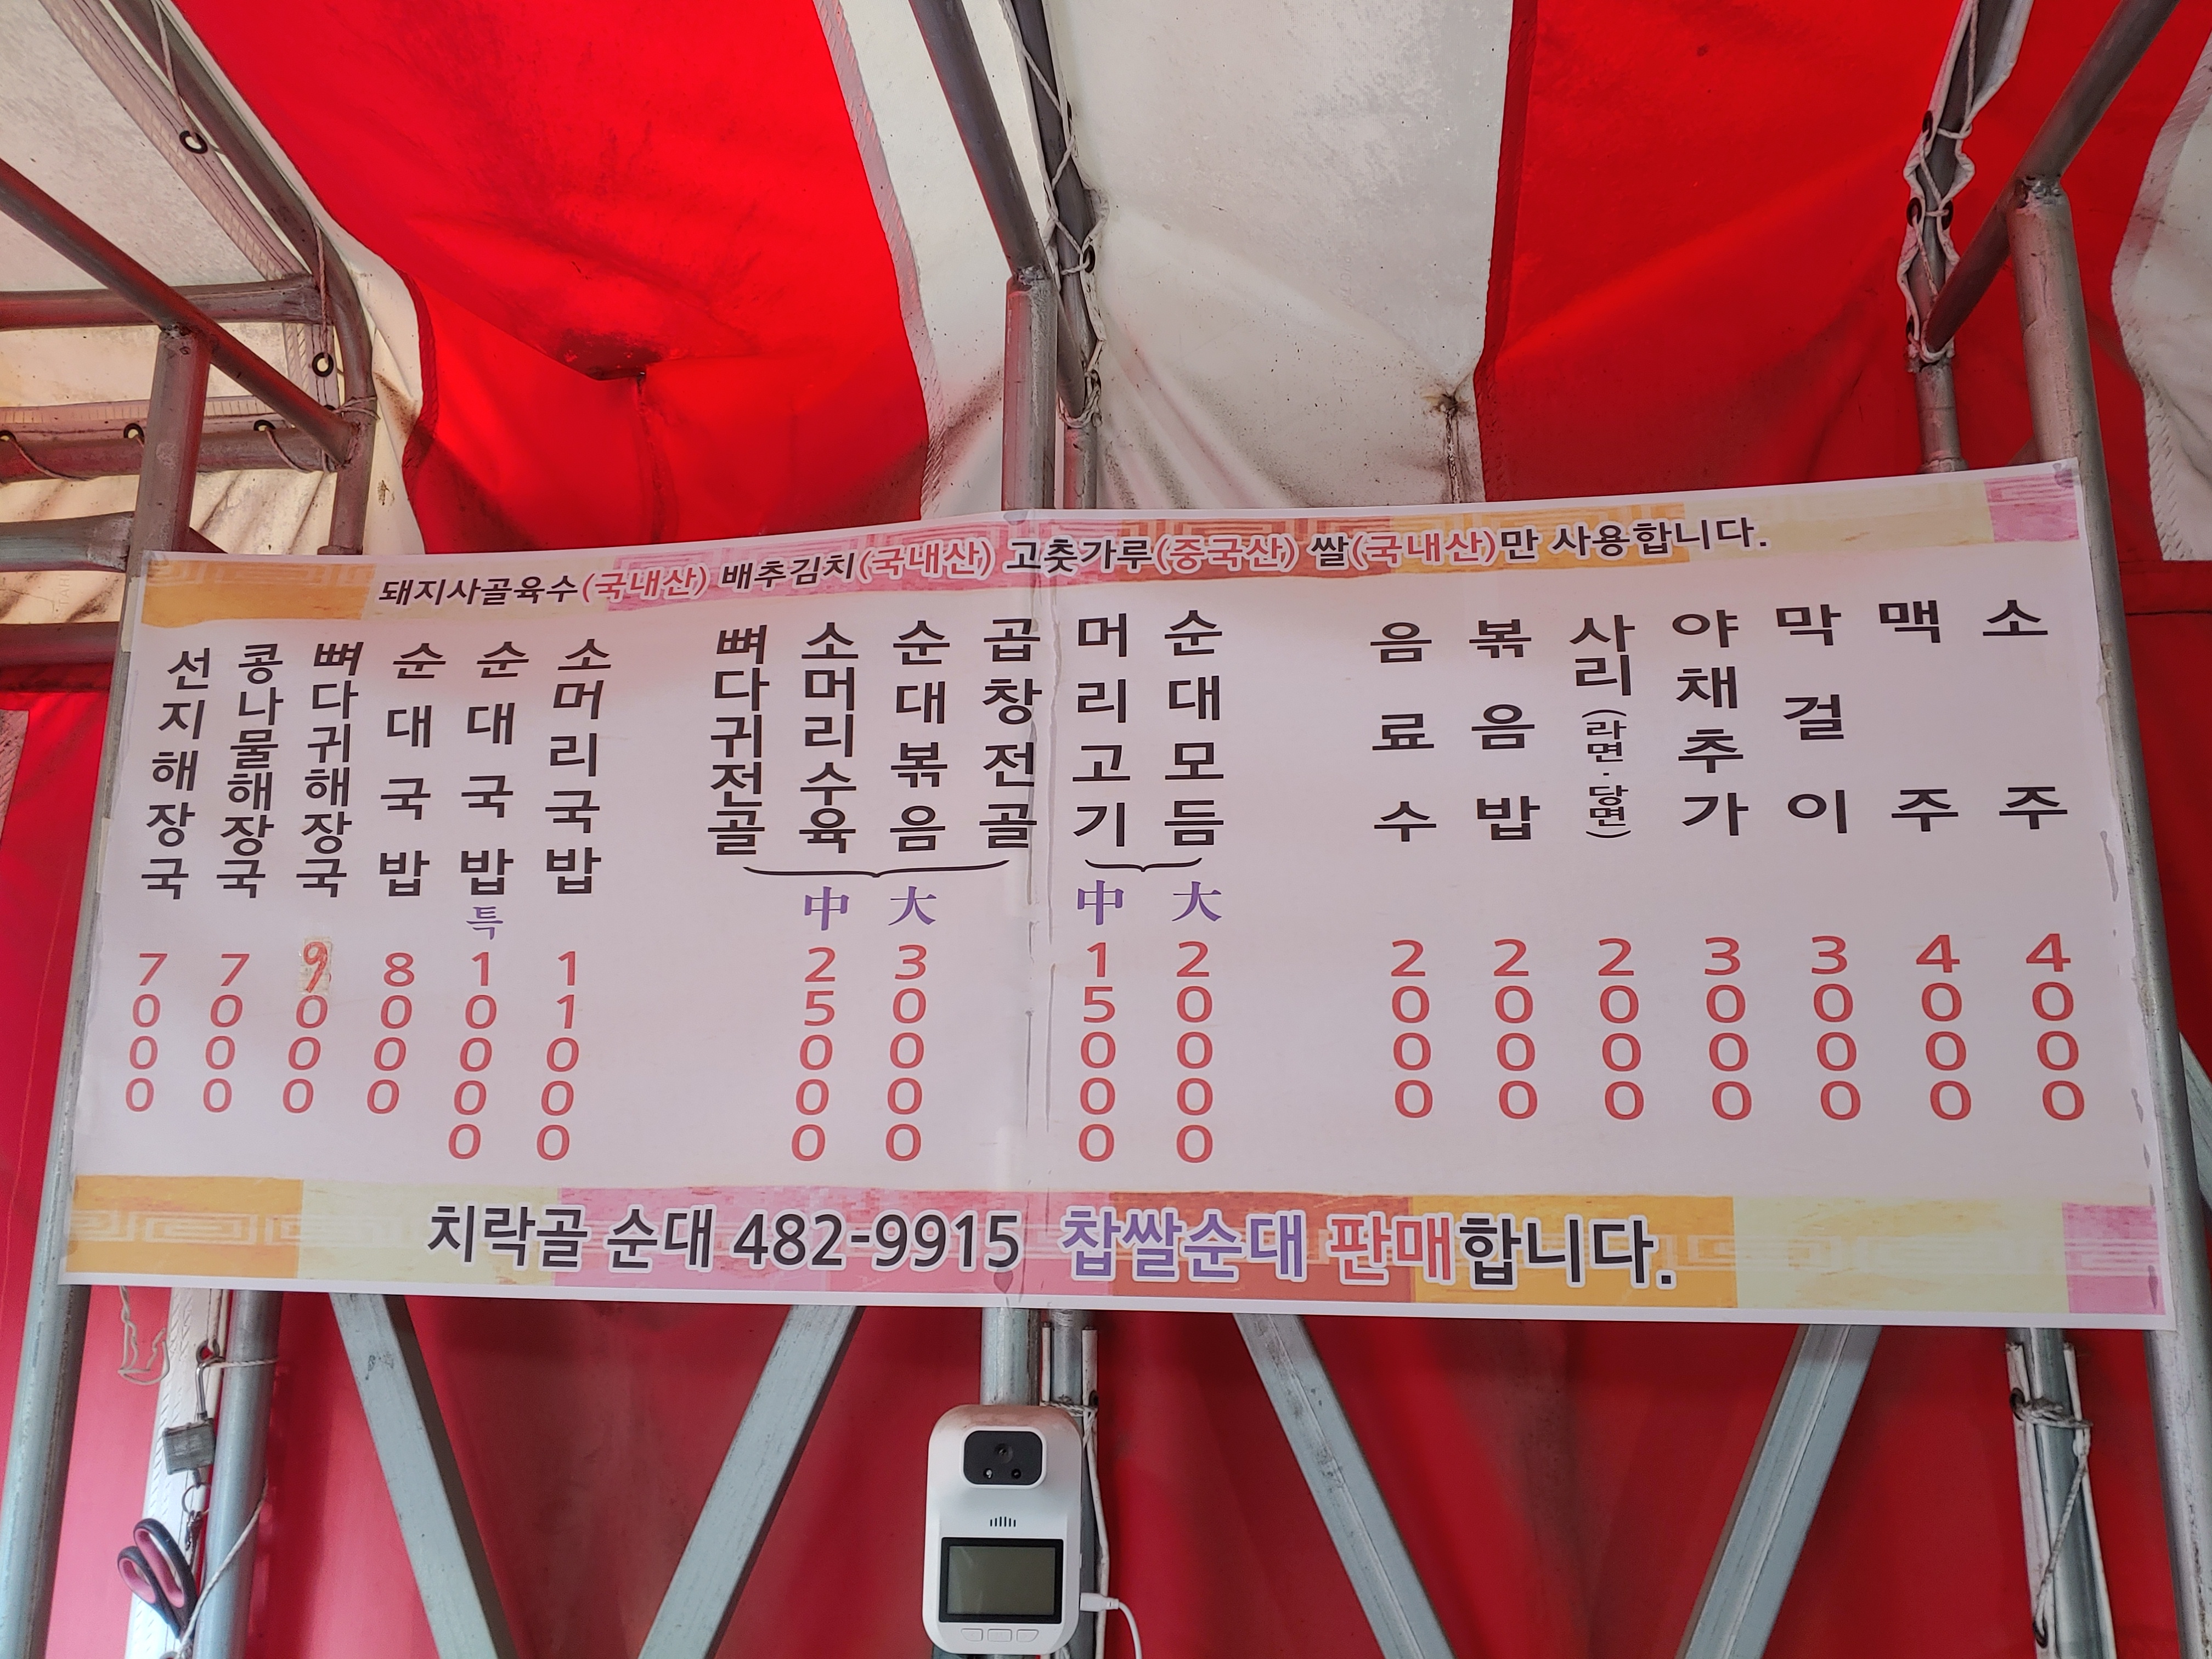 돼지사골육수(국내산) 배추김치(국내산) 고춧가루(중국산) 쌀(국내산)만 사용합니다.
선지해장국 7000
콩나물해장국 7000
뼈다귀해장국 9000
순대국밥 8000
순대국밥 특 10000
소머리국밥 11000
뼈다귀전골
소머리수육
순대볶음
곱창전골
中 25000
大 30000
머리고기
순대모듬
中 15000
大 20000
음료수 2000
볶음밥 2000
사리(라면·당면) 2000
야채추가 3000
막걸이 3000
맥주 4000
소주 4000
치락골 순대 482-9915 찹쌀순대 판매합니다.